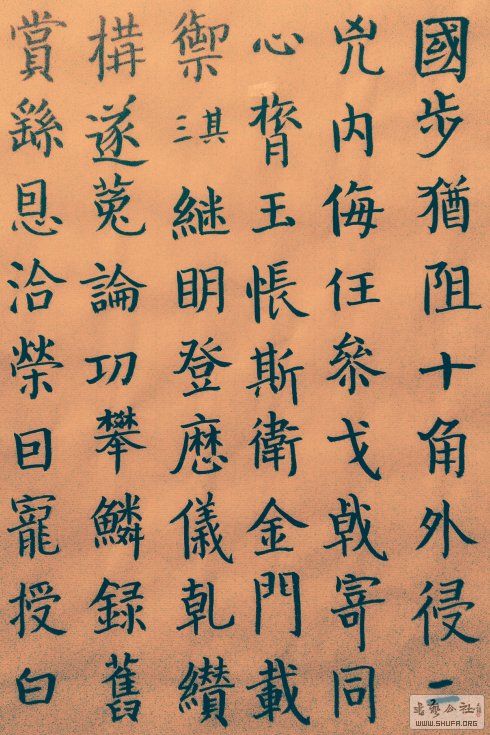 國步猶阻十角外侵二
兇内侮任參戈戟寄同
心膂玉帳斯衛金門載
禦淇継明登儀乹纘
構遂蒐論功攀鱗録舊
賞繇恩洽榮回寵授白
書藝公社
WWW.SHUFA.ORG